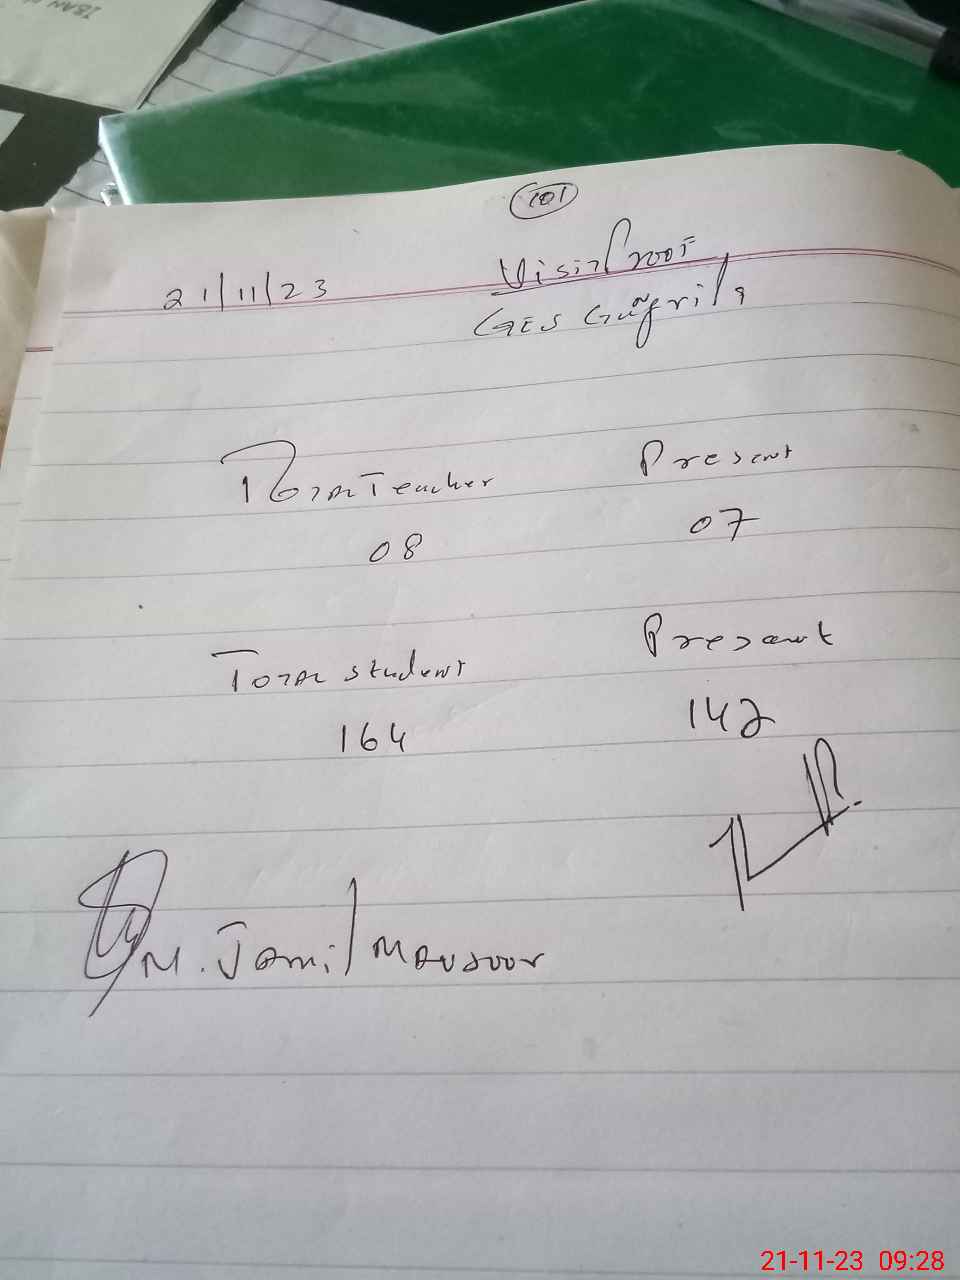 IBAN
101
21/11/23 Visit Proof
GES
Total Teacher Present
08 07
Total student Present
164 142
M. Jamil Mansoor
21-11-23 09:28